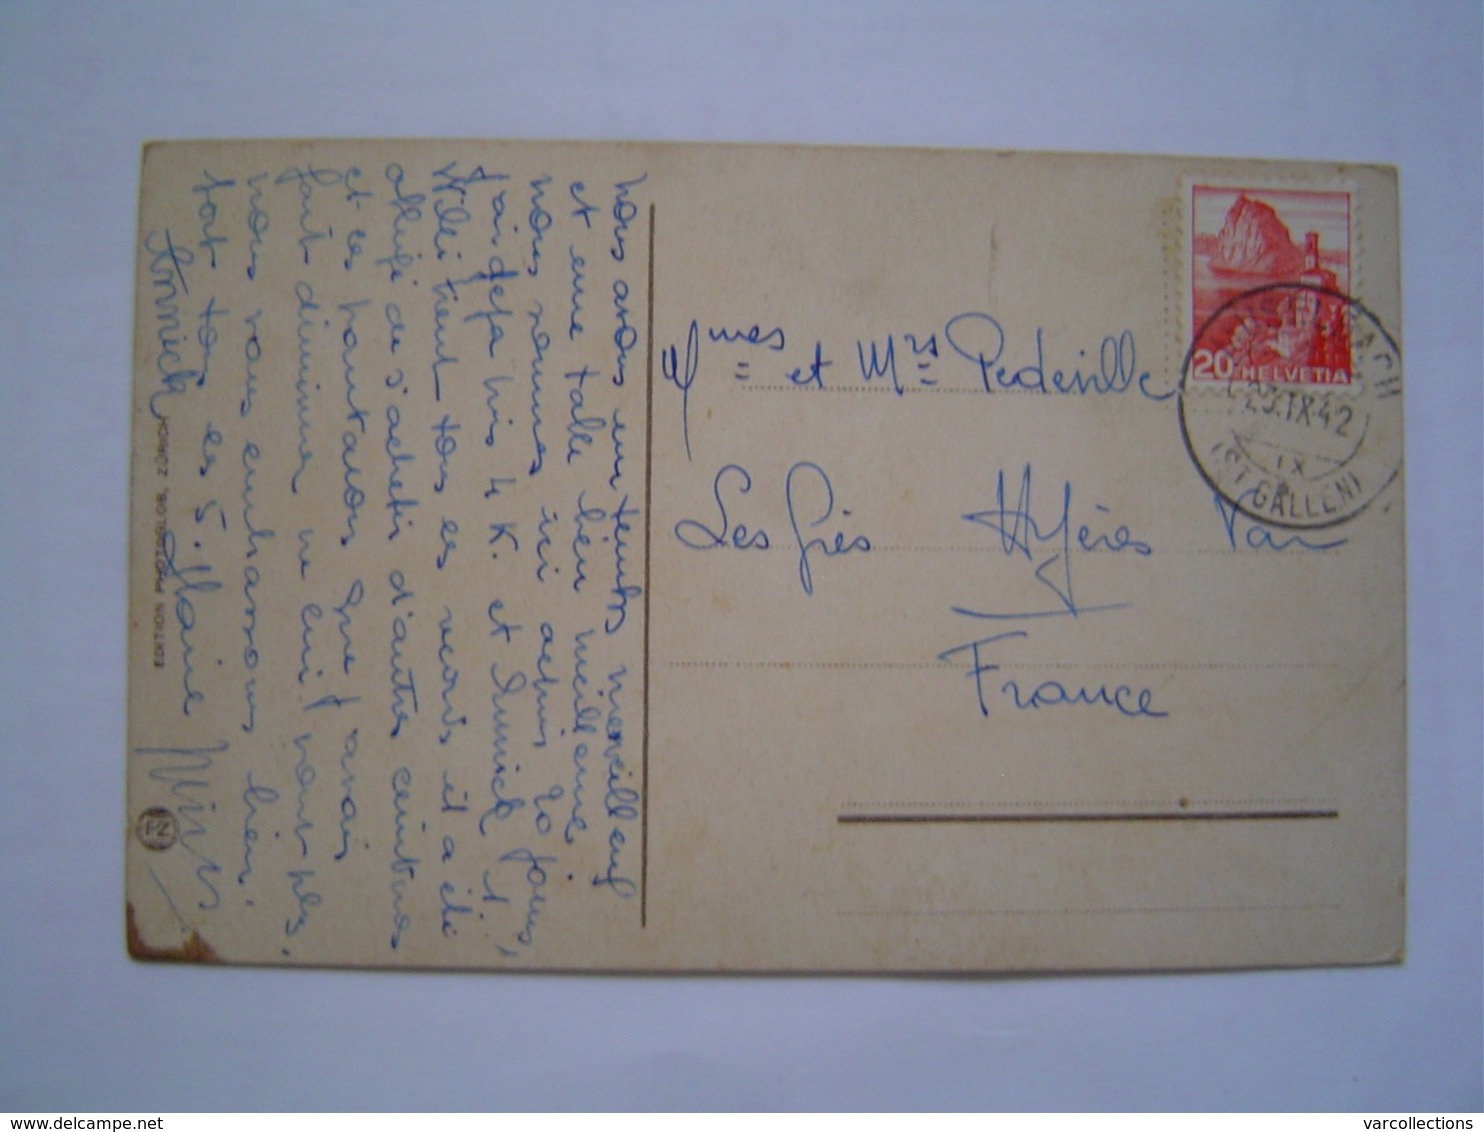 nous avons un temps merveilleux
et une table bien meilleure,
nous sommes ici depuis 20 jours,
j'ai déjà pris 4 K. et Annick 1.
Willi tient tous ces records il a été
obligé de s'acheter d'autres ceintures
et ces pantalons que j'avais
fait diminuer ne lui vont plus.
nous vous embrassons bien
fort tous les 5. Marie
Annick Willi
EDITION PHOTOGLOB, ZÜRICH
PZ
Mmes et Mrs Pedeville
Les Grès Hyères Var
France
20 HELVETIA
23.IX.42
IX
(ST GALLEN)
varcollections
delcampe.net